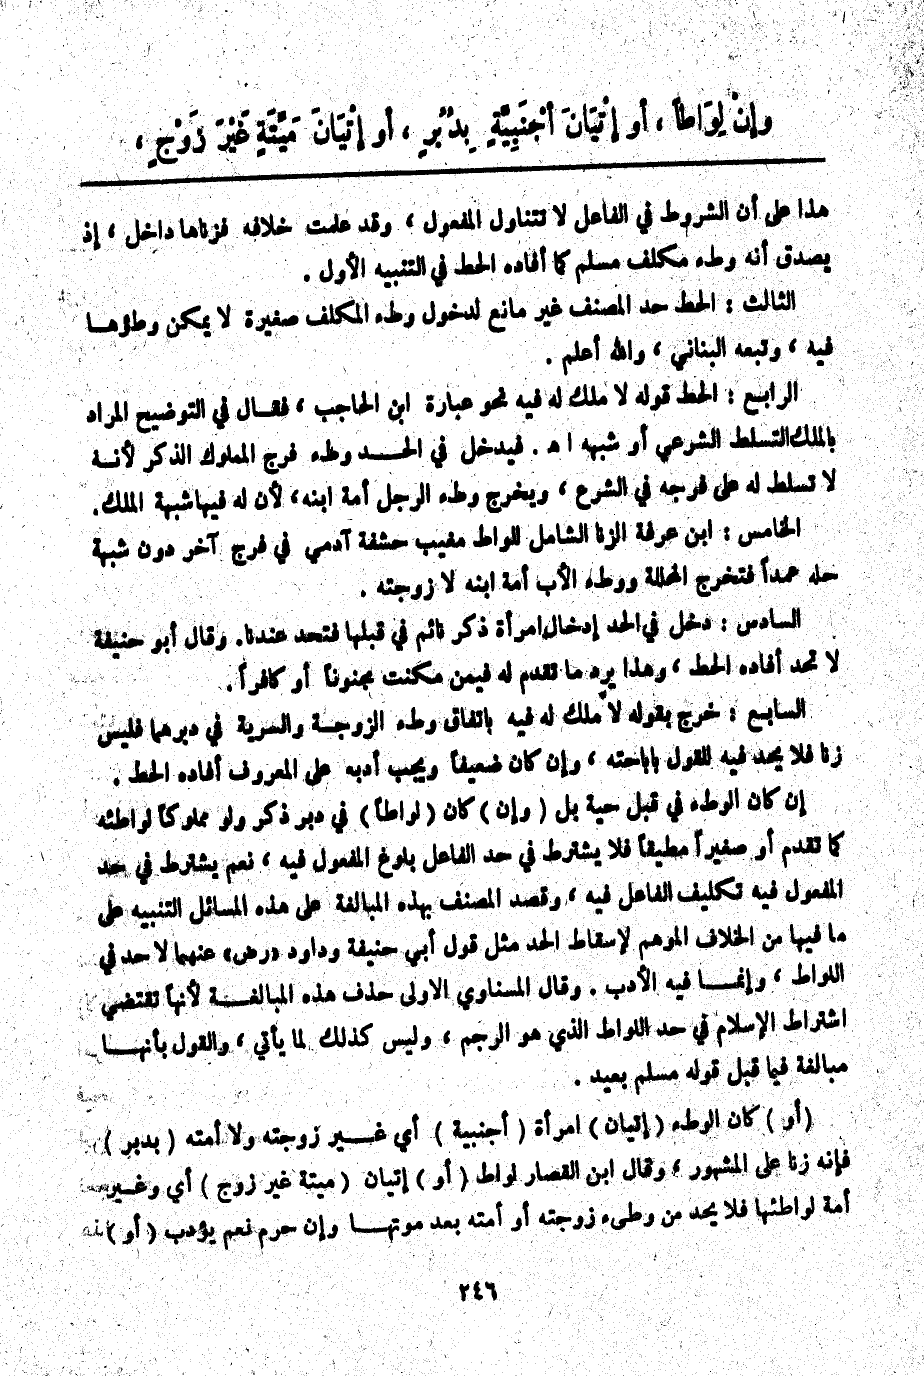 وإنْ لِوَاطاً ، أو إتْيَانَ أجْنَبِيَّةٍ بِدُبُرٍ ، أو إتْيَانَ مَيِّتَةٍ غَيْرَ زَوْجٍ ،
هذا على أن الشروط في الفاعل لا تتناول المفعول ، وقد علمت خلافه فزناها داخل ، إذ
يصدق أنه وطء مكلف مسلم كما أفاده الحط في التنبيه الأول .
الثالث : الحط حد المصنف غير مانع لدخول وطء المكلف صغيرة لا يمكن وطؤهـا
فيه ، وتبعه البناني ، والله أعلم .
الرابع : الحط قوله لا ملك له فيه نحو عبارة ابن الحاجب ، فقـال في التوضيح المراد
بالملك التسلط الشرعي أو شبهه ا هـ . فيدخل في الحـد وطء فرج المملوك الذكر لأنـه
لا تسلط له على فرجه في الشرع ، ويخرج وطء الرجل أمة ابنه ، لأن له فيها شبهة الملك.
الخامس : ابن عرفة الزنا الشامل للواط مغيب حشفة آدمي في فرج آخر دون شبهة
حله عمداً فتخرج المحللة ووطء الأب أمة ابنه لا زوجته .
السادس : دخل في الحد إدخال امرأة ذكر نائم في قبلها فتحد عندنا. وقال أبو حنيفة
لا تحد أفاده الحط ، وهذا يرد ما تقدم له فيمن مكنت مجنوناً أو كافراً .
السابع : خرج بقوله لا ملك له فيه باتفاق وطء الزوجـة والسرية في دبرهما فليس
زنا فلا يحد فيه للقول باباحته ، وإن كان ضعيفاً ويجب أدبه على المعروف أفاده الحط .
إن كان الوطء في قبل حية بل ( وإن ) كان ( لواطاً ) في دبر ذكر ولو مملوكاً لواطئه
كما تقدم أو صغيراً مطيقاً فلا يشترط في حد الفاعل بلوغ المفعول فيه ، نعم يشترط في حد
المفعول فيه تكليف الفاعل فيه ، وقصد المصنف بهذه المبالغة على هذه المسائل التنبيه على
ما فيها من الخلاف الموهم لإسقاط الحد مثل قول أبي حنيفة وداود «رض» عنهما لا حد في
اللواط ، وإنمـا فيه الأدب . وقال المسناوي الاولى حذف هذه المبالغـة لأنها تقتضي
اشتراط الإسلام في حد اللواط الذي هو الرجم ، وليس كذلك لما يأتي ، والقول بأنهـا
مبالغة فيما قبل قوله مسلم بعيد .
(أو ) كان الوطء ( إتيان ) امرأة ( أجنبية ) أي غـير زوجته ولا أمته ( بدبر )
فإنه زنا على المشهور ، وقال ابن القصار لواط ( أو ) إتيان ( ميتة غير زوج ) أي وغـير
أمة لواطئها فلا يحد من وطىء زوجته أو أمته بعد موتهـا وإن حرم نعم يؤدب ( أو )
٢٤٦